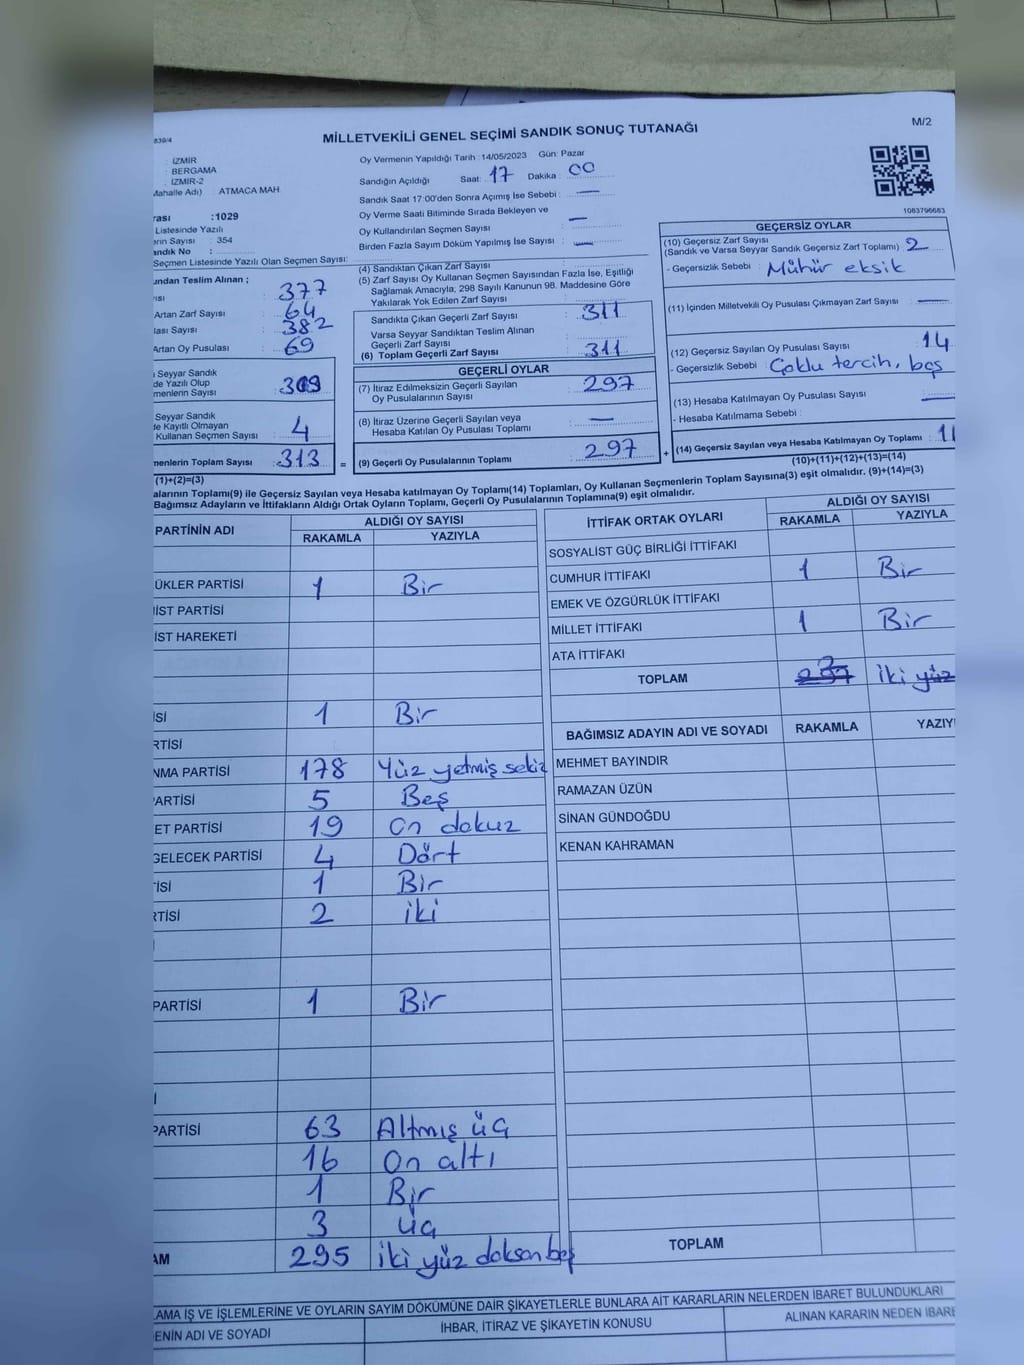 MİLLETVEKİLİ GENEL SEÇİMİ SANDIK SONUÇ TUTANAĞI
M/2
839/4
: İZMİR
: BERGAMA
: İZMİR-2
Mahalle Adı) : ATMACA MAH
Oy Vermenin Yapıldığı Tarih : 14/05/2023 Gün: Pazar
Sandığın Açıldığı Saat: 17 Dakika : 00
Sandık Saat 17:00'den Sonra Açımış İse Sebebi : —
Oy Verme Saati Bitiminde Sırada Bekleyen ve
Oy Kullandırılan Seçmen Sayısı : —
Birden Fazla Sayım Döküm Yapılmış İse Sayısı : —
1083796683
rası :1029
Listesinde Yazılı
erin Sayısı : 354
andık No :
Seçmen Listesinde Yazılı Olan Seçmen Sayısı:
undan Teslim Alınan ;
ısı : 377
Artan Zarf Sayısı : 64
lası Sayısı : 382
Artan Oy Pusulası : 69
Seyyar Sandık
de Yazılı Olup
menlerin Sayısı : 309
Seyyar Sandık
e Kayıtlı Olmayan
Kullanan Seçmen Sayısı : 4
menlerin Toplam Sayısı : 313 =
(1)+(2)=(3)
(4) Sandıktan Çıkan Zarf Sayısı
(5) Zarf Sayısı Oy Kullanan Seçmen Sayısından Fazla İse, Eşitliği
Sağlamak Amacıyla; 298 Sayılı Kanunun 98. Maddesine Göre
Yakılarak Yok Edilen Zarf Sayısı :
Sandıkta Çıkan Geçerli Zarf Sayısı : 311
Varsa Seyyar Sandıktan Teslim Alınan
Geçerli Zarf Sayısı :
(6) Toplam Geçerli Zarf Sayısı : 311
GEÇERLİ OYLAR
(7) İtiraz Edilmeksizin Geçerli Sayılan
Oy Pusulalarının Sayısı : 297
(8) İtiraz Üzerine Geçerli Sayılan veya
Hesaba Katılan Oy Pusulası Toplamı : —
(9) Geçerli Oy Pusulalarının Toplamı : 297 +
GEÇERSİZ OYLAR
(10) Geçersiz Zarf Sayısı
(Sandık ve Varsa Seyyar Sandık Geçersiz Zarf Toplamı) 2
- Geçersizlik Sebebi : Mühür eksik
(11) İçinden Milletvekili Oy Pusulası Çıkmayan Zarf Sayısı : —
(12) Geçersiz Sayılan Oy Pusulası Sayısı : 14
- Geçersizlik Sebebi : Çoklu tercih, boş
(13) Hesaba Katılmayan Oy Pusulası Sayısı : —
- Hesaba Katılmama Sebebi :
(14) Geçersiz Sayılan veya Hesaba Katılmayan Oy Toplamı :
(10)+(11)+(12)+(13)=(14)
alarının Toplamı(9) ile Geçersiz Sayılan veya Hesaba katılmayan Oy Toplamı(14) Toplamları, Oy Kullanan Seçmenlerin Toplam Sayısına(3) eşit olmalıdır. (9)+(14)=(3)
Bağımsız Adayların ve İttifakların Aldığı Ortak Oyların Toplamı, Geçerli Oy Pusulalarının Toplamına(9) eşit olmalıdır.
PARTİNİN ADI ALDIĞI OY SAYISI
RAKAMLA YAZIYLA
ÜKLER PARTİSİ 1 Bir
İST PARTİSİ
İST HAREKETİ
İSİ 1 Bir
RTİSİ
NMA PARTİSİ 178 Yüz yetmiş sekiz
ARTİSİ 5 Beş
ET PARTİSİ 19 On dokuz
GELECEK PARTİSİ 4 Dört
İSİ 1 Bir
RTİSİ 2 iki
PARTİSİ 1 Bir
PARTİSİ 63 Altmış üç
16 On altı
1 Bir
3 üç
AM 295 iki yüz doksan beş
İTTİFAK ORTAK OYLARI ALDIĞI OY SAYISI
RAKAMLA YAZIYLA
SOSYALİST GÜÇ BİRLİĞİ İTTİFAKI
CUMHUR İTTİFAKI 1 Bir
EMEK VE ÖZGÜRLÜK İTTİFAKI
MİLLET İTTİFAKI 1 Bir
ATA İTTİFAKI
TOPLAM 2 iki yüz
BAĞIMSIZ ADAYIN ADI VE SOYADI RAKAMLA YAZIY
MEHMET BAYINDIR
RAMAZAN ÜZÜN
SİNAN GÜNDOĞDU
KENAN KAHRAMAN
TOPLAM
LAMA İŞ VE İŞLEMLERİNE VE OYLARIN SAYIM DÖKÜMÜNE DAİR ŞİKAYETLERLE BUNLARA AİT KARARLARIN NELERDEN İBARET BULUNDUKLARI
ENİN ADI VE SOYADI İHBAR, İTİRAZ VE ŞİKAYETİN KONUSU ALINAN KARARIN NEDEN İBARE